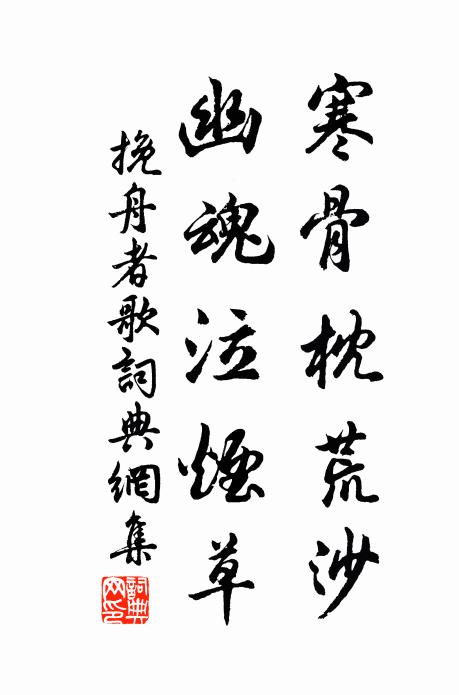 寒骨枕荒沙
幽魂泣煙草
挽舟者歌詞典網集
詞典网印